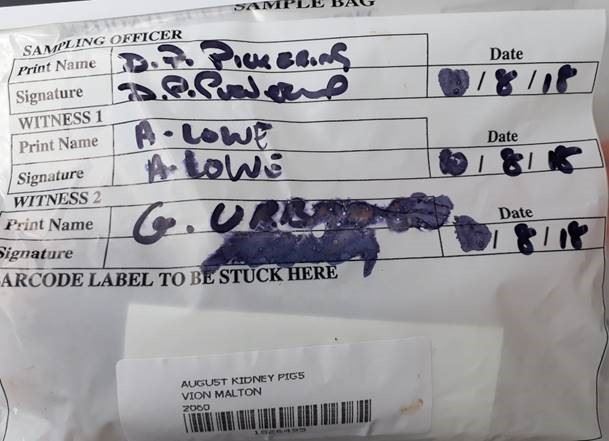 SAMPLE BAG
SAMPLING OFFICER
Print Name D.P. PICKERING
Date
Signature / 8 / 18
WITNESS 1
Print Name A. LOWE
Date
Signature A. LOWE / 8 / 18
WITNESS 2
Print Name G.
Date
Signature / 8 / 18
ARCODE LABEL TO BE STUCK HERE
AUGUST KIDNEY PIGS
VION MALTON
2060